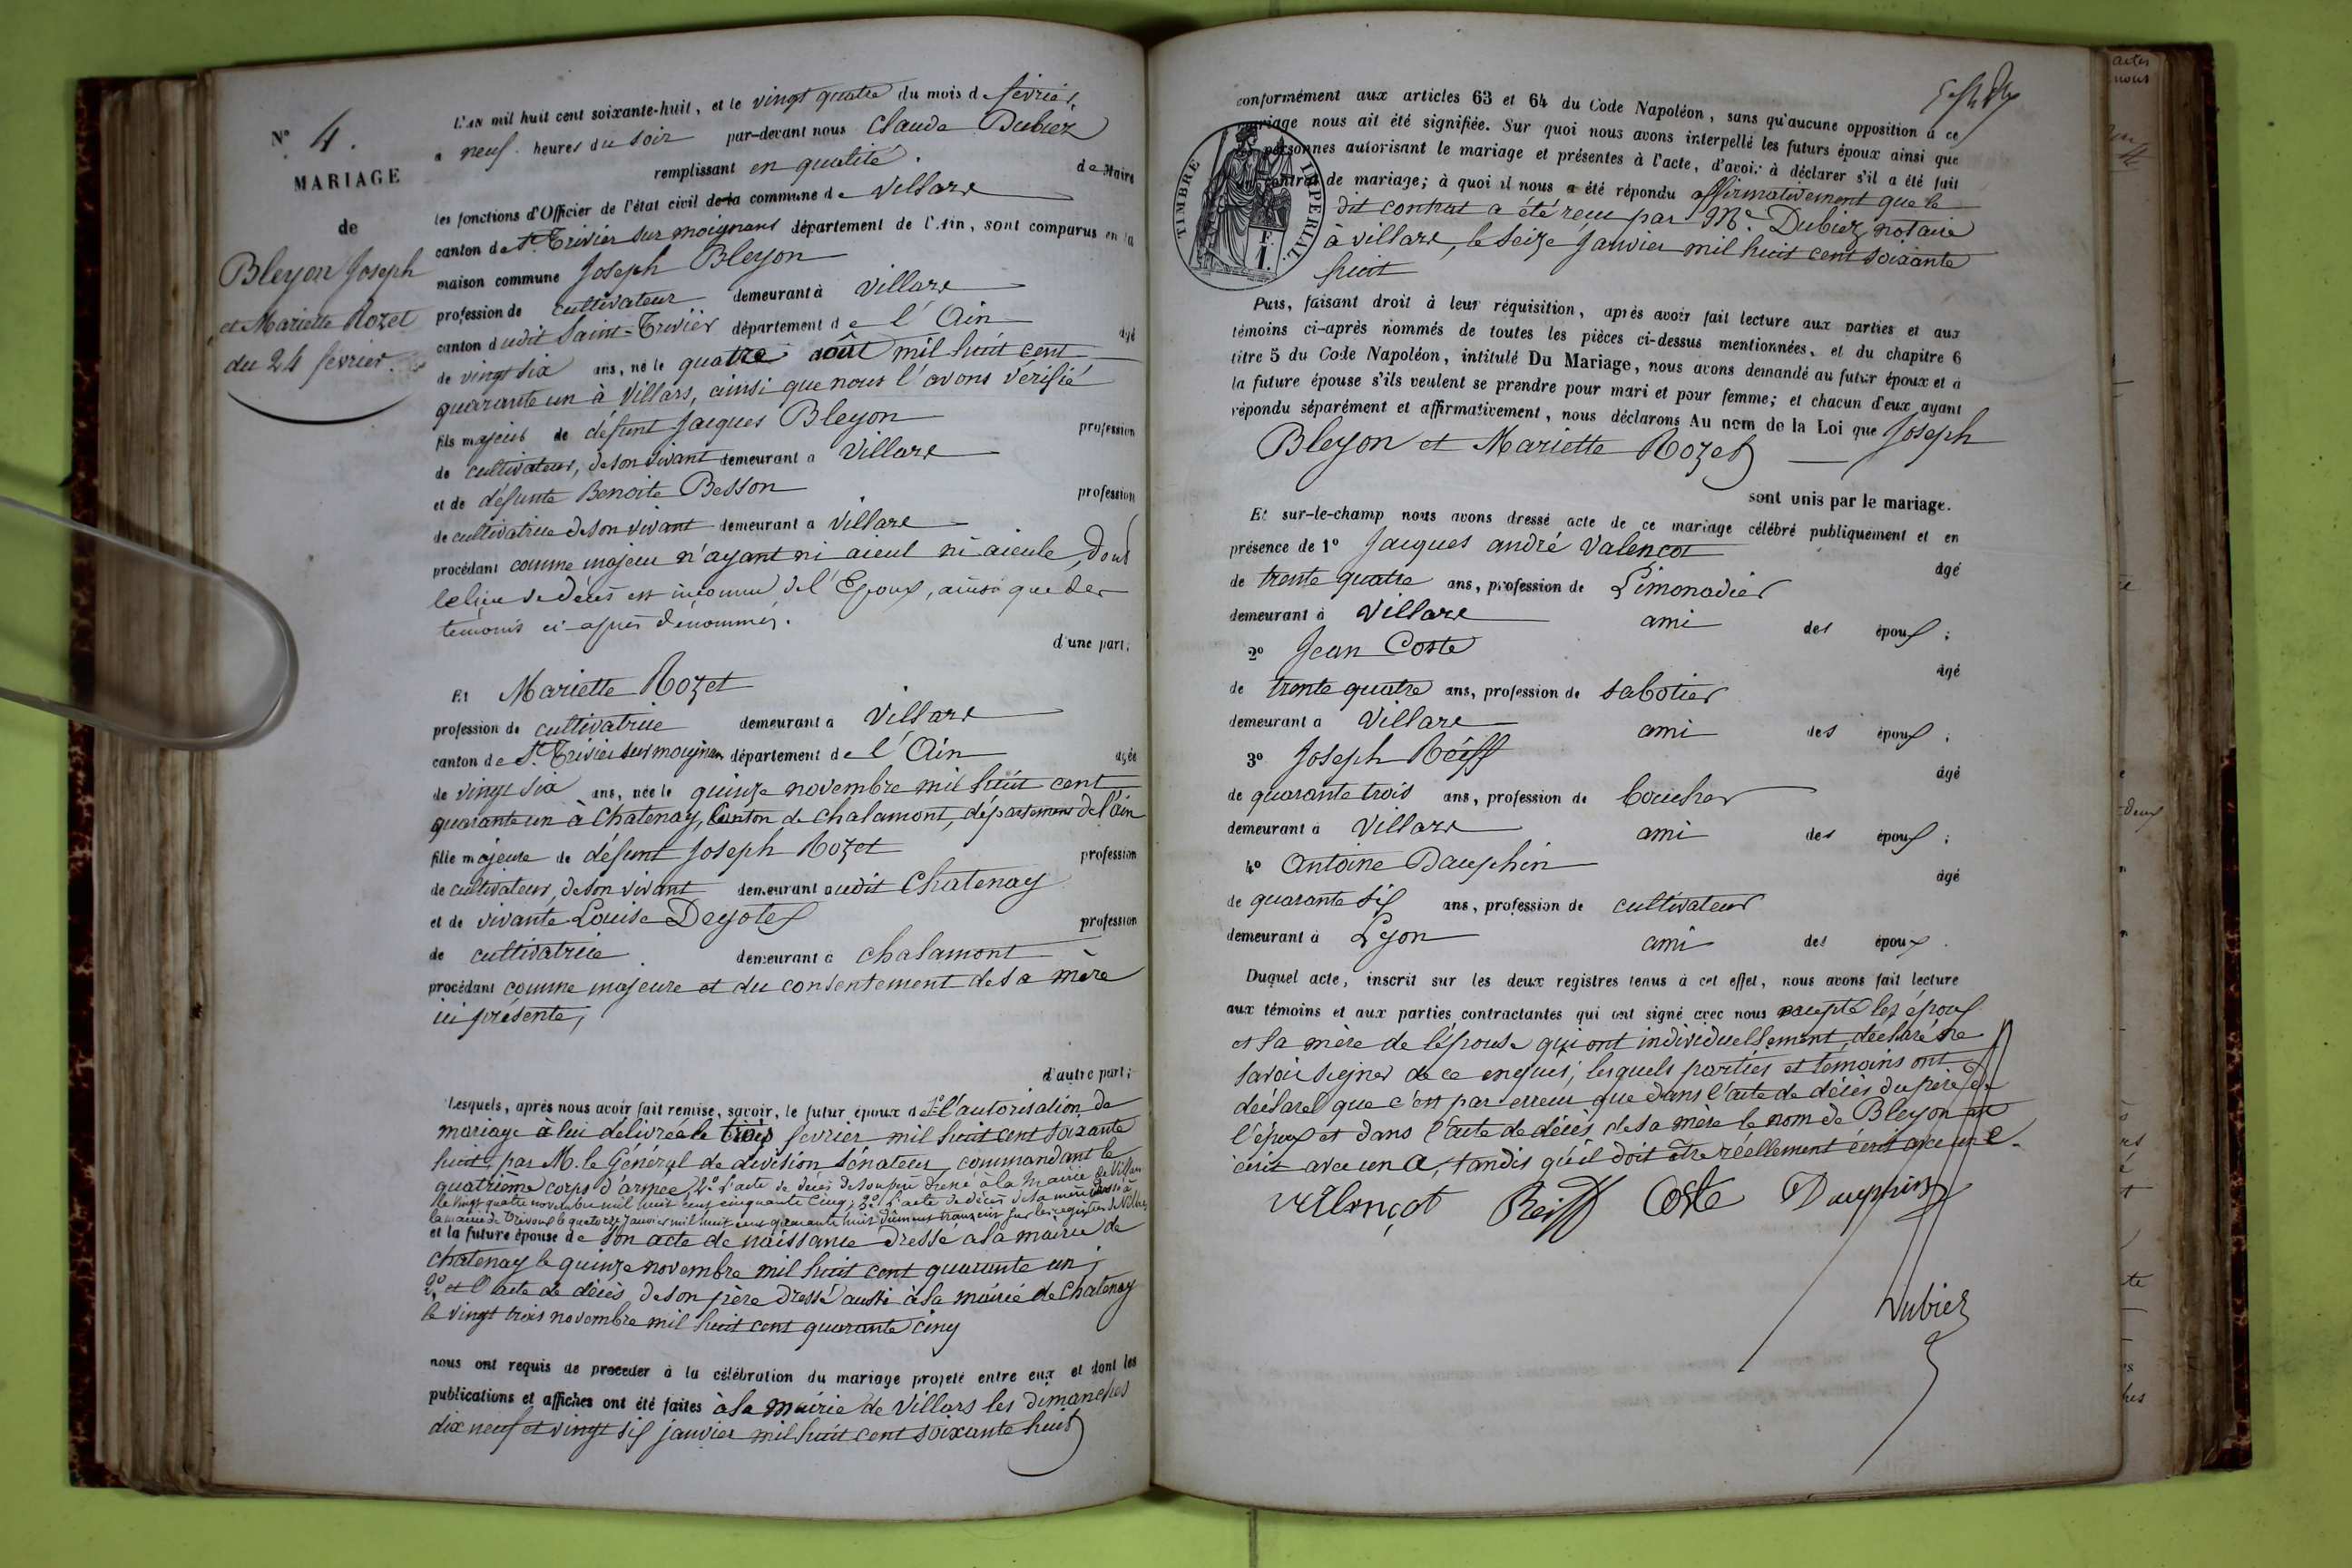 N° 4.
MARIAGE
de
Bleyon Joseph
et Mariette Rozet
du 24 février.
L'AN mil huit cent soixante-huit, et le vingt quatre du mois de février,
a neuf heures du soir par-devant nous Claude Dubiez
remplissant en qualité de Maire
les fonctions d'Officier de l'état civil de la commune de Villars
canton de St. Trivier sur moignans département de l'Ain, sont comparus en la
maison commune Joseph Bleyon
profession de cultivateur demeurant à Villars
canton dudit Saint-Trivier département de l'Ain âgé
de vingt six ans, né le quatre août mil huit cent
quarante un à Villars, ainsi que nous l'avons vérifié
fils majeur de défunt Jacques Bleyon profession
de cultivateur, de son vivant demeurant a Villars
et de défunte Benoite Besson profession
de cultivatrice de son vivant demeurant a Villars
procédant comme majeur n'ayant ni aieul ni aieule, dont
le lieu de décès est inconnu de l'Epoux, ainsi que des
témoins ci-après dénommés.
d'une part;
Et Mariette Rozet
profession de cultivatrice demeurant a Villars
canton de St. Trivier sur moignans département de l'Ain agée
de vingt six ans, née le quinze novembre mil huit cent
quarante un à Chatenay, Canton de Chalamont, département de l'ain
fille majeure de défunt Joseph Rozet profession
de cultivateur, de son vivant demeurant audit Chatenay
et de vivante Louise profession
de cultivatrice demeurant a Chalamont
procédant comme majeure et du consentement de sa mère
ici présente,
d'autre part;
Lesquels, après nous avoir fait remise, savoir, le futur époux de 1° l'autorisation de
mariage à lui délivrée le trois février mil huit cent soixante
huit, par M. le Général de division, Sénateur, commandant le
quatrième corps d'armée, 2° l'acte de décès de son père dressé à la Mairie de Villars
le vingt quatre novembre mil huit cent cinquante cinq; 3° l'acte de décès de sa mère dressé à
la mairie de Trévoux le quatorze janvier mil huit cent quarante huit dûment transcrit sur les registres de Villars
et la future épouse de son acte de naissance dressé à la mairie de
Chatenay le quinze novembre mil huit cent quarante un;
2° et l'acte de décès de son père dressé aussi à la mairie de Chatenay
le vingt trois novembre mil huit cent quarante cinq
nous ont requis de proceder à la célébration du mariage projeté entre eux et dont les
publications et affiches ont été faites à la mairie de Villars les dimanches
dix neuf et vingt six janvier mil huit cent soixante huit
conformément aux articles 63 et 64 du Code Napoléon, sans qu'aucune opposition à ce
mariage nous ait été signifiée. Sur quoi nous avons interpellé les futurs époux ainsi que
personnes autorisant le mariage et présentes à l'acte, d'avoir à déclarer s'il a été fait
contrat de mariage; à quoi il nous a été répondu affirmativement que le
dit contrat a été reçu par Me. Dubiez, notaire
à villars, le seize janvier mil huit cent soixante
huit
TIMBRE IMPERIAL.
F.
1.
Puis, faisant droit à leur réquisition, après avoir fait lecture aux parties et aux
témoins ci-après nommés de toutes les pièces ci-dessus mentionnées, et du chapitre 6
titre 5 du Code Napoléon, intitulé Du Mariage, nous avons demandé au futur époux et à
la future épouse s'ils veulent se prendre pour mari et pour femme; et chacun d'eux ayant
répondu séparément et affirmativement, nous déclarons Au nom de la Loi que Joseph
Bleyon et Mariette Rozet
sont unis par le mariage.
Et sur-le-champ nous avons dressé acte de ce mariage célébré publiquement et en
présence de 1° Jacques andré Valençot âgé
de trente quatre ans, profession de Limonadier
demeurant à Villars ami des époux;
2° Jean Coste âgé
de trente quatre ans, profession de sabotier
demeurant a Villars ami des époux;
3° Joseph Réiff âgé
de quarante trois ans, profession de boucher
demeurant à Villars ami des époux;
4° Antoine Dauphin âgé
de quarante six ans, profession de cultivateur
demeurant à Lyon ami des époux.
Duquel acte, inscrit sur les deux registres tenus à cet effet, nous avons fait lecture
aux témoins et aux parties contractantes qui ont signé avec nous excepté les époux
et la mère de l'épouse qui ont individuellement, déclaré ne
savoir signer de ce enquis; lesquels parties et témoins ont
déclaré que c'est par erreur que dans l'acte de décès du père de
l'époux et dans l'acte de décès de sa mère le nom de Bleyon est
écrit avec un a, tandis qu'il doit être réellement écrit avec un e.
Valençot Reiff Coste Dauphin
Dubiez